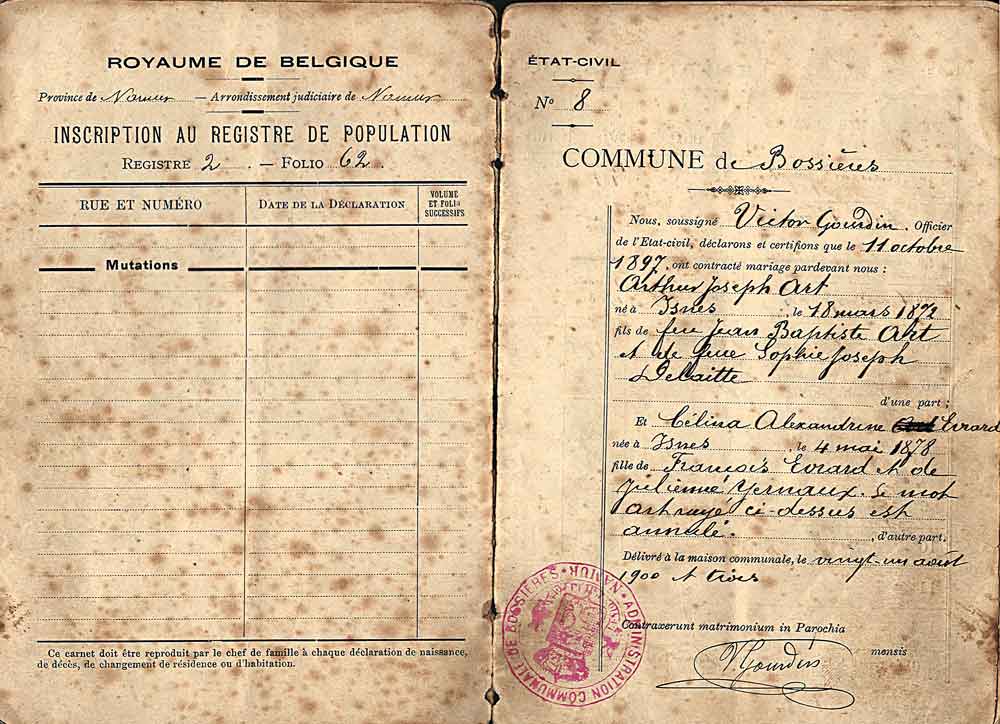 ROYAUME DE BELGIQUE
Province de Namur — Arrondissement judiciaire de Namur
INSCRIPTION AU REGISTRE DE POPULATION
REGISTRE 2 — FOLIO 62
RUE ET NUMÉRO
DATE DE LA DÉCLARATION
VOLUME
ET FOLIO
SUCCESSIFS
Mutations
Ce carnet doit être reproduit par le chef de famille à chaque déclaration de naissance,
de décès, de changement de résidence ou d'habitation.
ÉTAT-CIVIL
N° 8
COMMUNE de Bossières
Nous, soussigné Victor Gourdin, Officier
de l'Etat-civil, déclarons et certifions que le 11 octobre
1897, ont contracté mariage pardevant nous :
Arthur Joseph Art
né à Isnes, le 18 mars 1872
fils de feu Jean Baptiste Art
et de feue Sophie Joseph
Delaitte
d'une part ;
Et Célina Alexandrine Evrard
née à Isnes, le 4 mai 1878
fille de François Evrard et de
Julienne Gernaux. Le mot
Art rayé ci-dessus est
annulé.
, d'autre part.
Délivré à la maison communale, le vingt-un août
1900 et trois
Contraxerunt matrimonium in Parochia
mensis
VGourdin
ADMINISTRATION COMMUNALE DE BOSSIÈRES • NAMUR •